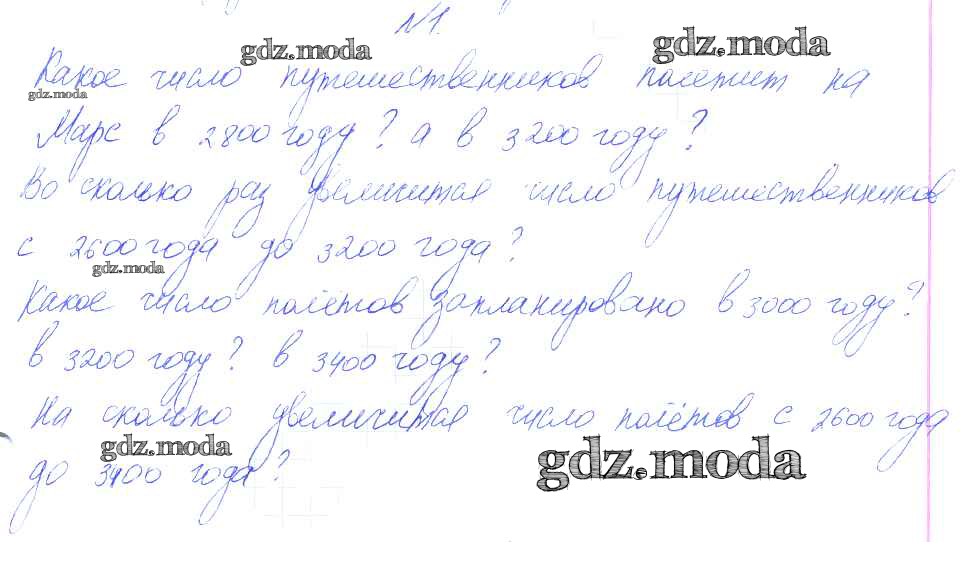 №1.
gdz.moda
gdz.moda
Какое число путешественников полетит на
gdz.moda
Марс в 2800 году? а в 3200 году?
Во сколько раз увеличится число путешественников
с 2600 года до 3200 года?
gdz.moda
Какое число полётов запланировано в 3000 году?
в 3200 году? в 3400 году?
На сколько увеличится число полётов с 2600 года
gdz.moda
gdz.moda
до 3400 года?